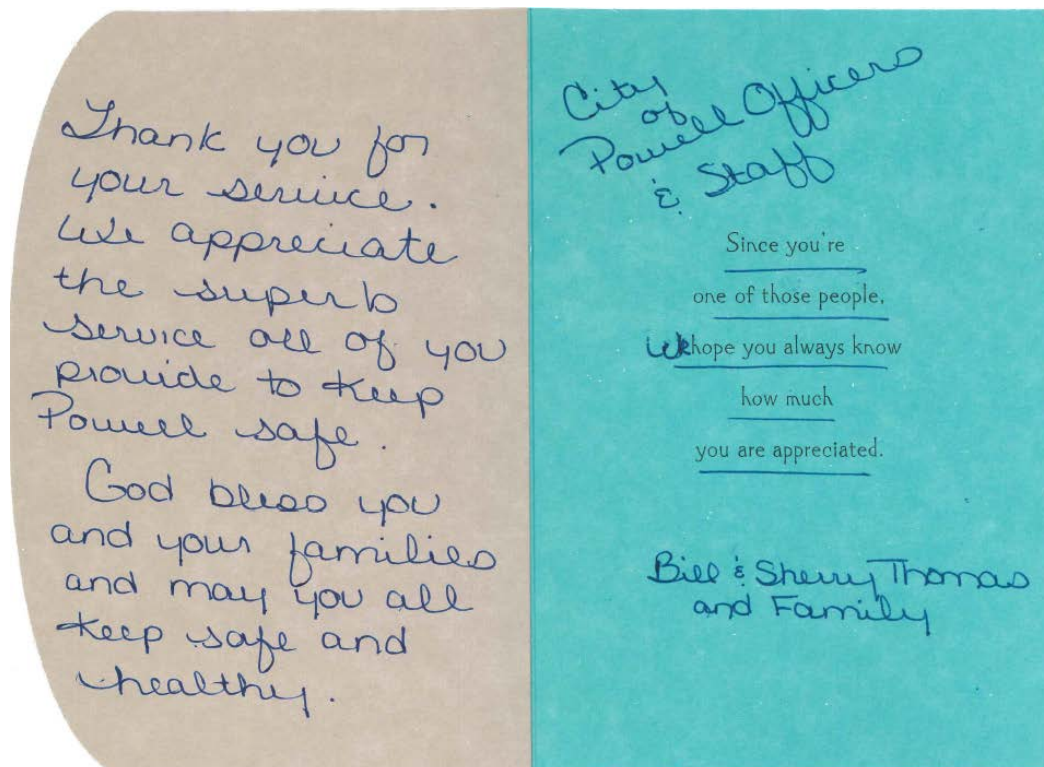 Thank you for
your service.
We appreciate
the superb
service all of you
provide to keep
Powell safe.
God bless you
and your families
and may you all
keep safe and
healthy.
City
of
Powell Officers
& Staff
Since you're
one of those people,
We hope you always know
how much
you are appreciated.
Bill & Sherry Thomas
and Family